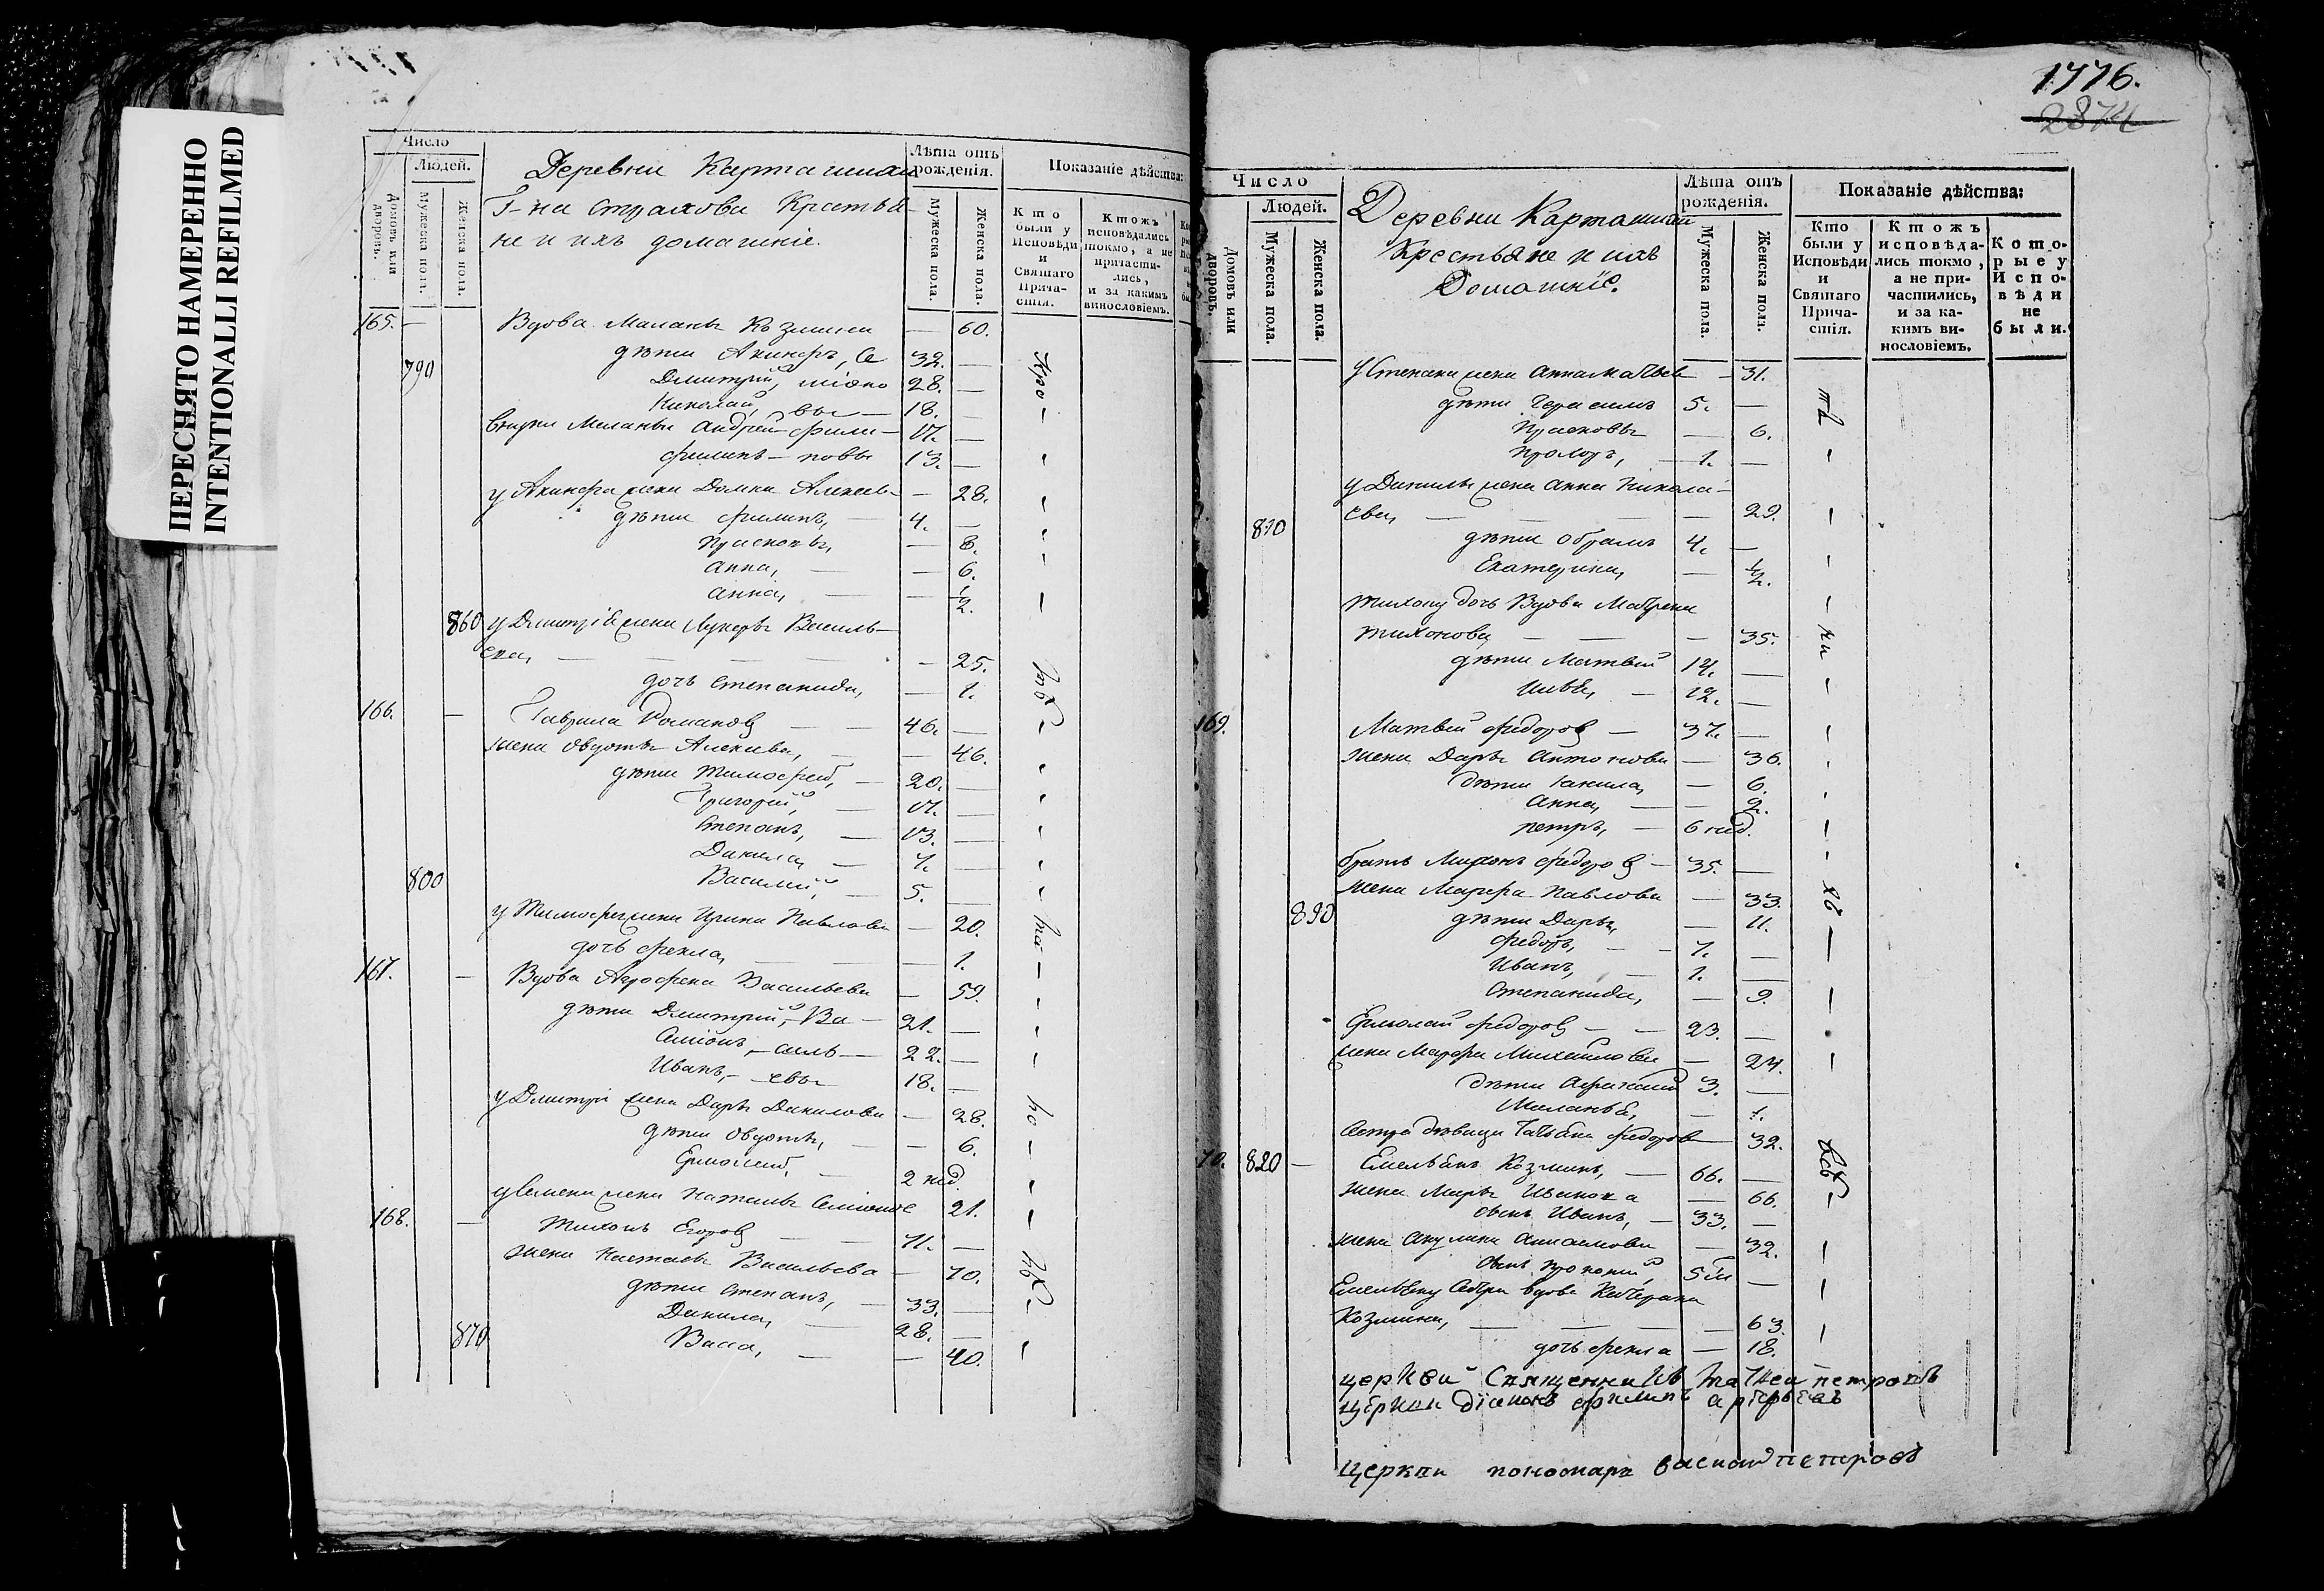 ПЕРЕСНЯТО НАМЕРЕННО
INTENTIONALLI REFILMED
Число
Людей.
Домовъ или дворовъ.
Мужеска пола.
Женска пола.
Деревни
Г-на Страхова Крестья-
не и ихъ домашніе.
Лѣта отъ рожденія.
Мужеска пола.
Женска пола.
Показаніе дѣйства:
Кто были у Исповѣди и Святаго Прича-стія.
Ктожъ исповѣдались токмо, а не причасти-лись, и за какимъ винословіемъ.
165. — Вдова Маланья Козмина — 60.
дѣти Акинфъ, Се 32. —
790 Дмитрій, міоно 28. —
Николай, вы — 18. —
внуки Маланьи Андрей Фили- 17. —
Филипъ — повы 13. —
у Акинфа жена Домна Алексев- — 28.
дѣти Филипъ, — 4. —
— 8.
Анна, — — 6.
Анна, — — 1/2.
860 у Дмитрія жена Лукерья Василь-
ева, — 25.
дочь Степанида, — 1.
166. — Гаврила Романов 46. —
жена Овдотья Алексева, — 46.
дѣти Тимофей, — 20. —
Григорій, — 17. —
Степанъ, — 13. —
Данила, — 7. —
800 Василий, — 5. —
у Тимофея жена Ирина Павлова — 20.
дочь Фекла, — 1.
167. — Вдова Агрофена Васильева — 59.
дѣти Дмитрий, — Ва — 21. —
Семіонъ, — силь — 22. —
Иванъ, — евы 18. —
у Дмитрі жена Дарья Данилова — 28.
дѣти Овдотья, — — 6.
Ермолай, — 2 нед.
у Семена жена Наталья 21.
168. — Тихонъ Егоров — 71. —
жена Настасья Васильева — 70.
дѣти Степанъ, — 33. —
Данила, — 28. —
870 Васса, — — 40.
1776.
2874
Число
Людей.
Домовъ или дворовъ.
Мужеска пола.
Женска пола.
Деревни
Крестьяне и ихъ
Домашніе.
Лѣта отъ рожденія.
Мужеска пола.
Женска пола.
Показаніе дѣйства:
Кто были у Исповѣди и Святаго Прича-стія.
Ктожъ исповѣда-лись токмо, а не при-частились, и за ка-кимъ ви-нословіемъ.
Кото-рые у Испо-вѣди не были.
у Степана жена Анна Матвев — 31.
дѣти Герасимъ 5. —
Прасковья — 6.
1. —
у Данилы жена Анна Никола-
ева, — 29.
810 дѣти Обрамъ 4. —
Екатерина, — 1/2.
Тихону дочь Вдова Матрена
Тихонова, — 35.
дѣти Матвей 14. —
12. —
169. Матвей Федоров — 37. —
жена Дарья Антонова — 36.
дѣти — 6.
Анна, — 2.
петръ, — 6 нед.
братъ Федоров — 35. —
жена Марфа Павлова — 33.
890 дѣти Дарья, — 11.
Федоръ, — 7. —
Иванъ, — 1. —
Степанида, — 9.
Ермолай Федоров — 23. —
жена Марфа Михайлова — 24.
дѣти 3. —
Маланья, — 1.
Сестра дѣвица Татьяна Федоров — 32.
70. 820 — Емельянъ Козминъ, — 66. —
жена Марья Иванова — 66.
сынъ Иванъ, — 33. —
жена Акулина — 32.
сынъ Прокопий —
Емельяну сестра вдова Катерина
Козмина, — 63.
дочь Фекла — 18.
церкви Священникъ Матвеи петровъ
церкви діаконъ филипъ
церкви пономарь василий петровъ